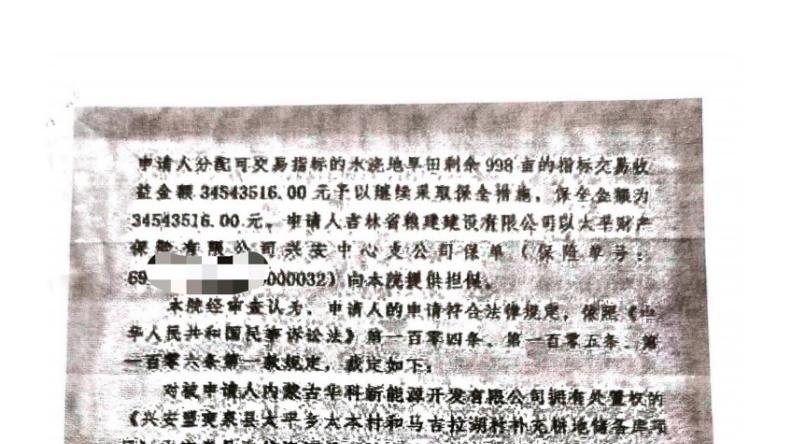 申请人分配可交易指标的水浇地旱田剩余998亩的指标交易收
益金额34543516.00元予以继续采取保全措施，保全金额为
34543516.00元。申请人吉林省粮建建设有限公司以太平财产
保险有限公司兴安中心支公司保单（保险单号：
69 000032）向本院提供担保。
本院经审查认为，申请人的申请符合法律规定，依照《中
华人民共和国民事诉讼法》第一百零四条、第一百零五条、第
一百零六条第一款规定，裁定如下：
对被申请人内蒙古华科新能源开发有限公司拥有处置权的
《兴安盟突泉县太平乡太本村和马吉拉胡村补充耕地储备库项